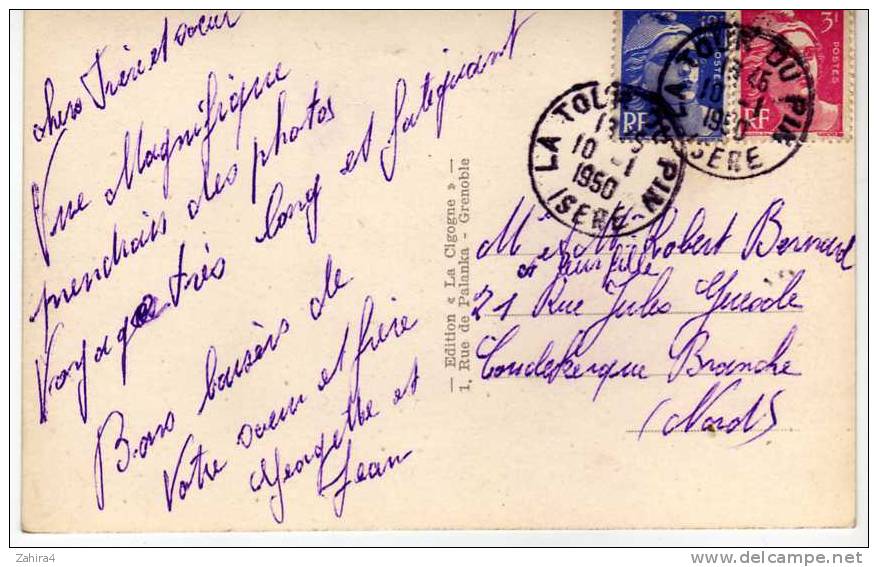 chers Frère et soeur
Vue Magnifique
prendrais des photos
Voyage très long et fatiguant
Bons baisers de
Votre soeur et frère
Georgette et
Jean
— Edition « La Cigogne » —
1, Rue de Palanka - Grenoble
10F
POSTES
RF
3F
POSTES
RF
LA TOUR DU PIN
10 -1
1950
ISERE
LA TOUR DU PIN
45
10 -1
1950
ISERE
Mr et Mme Robert Bernard
et leur fille
21 Rue Jules Guesde
Coudekerque Branche
(Nord)
Zahira4
www.delcampe.net